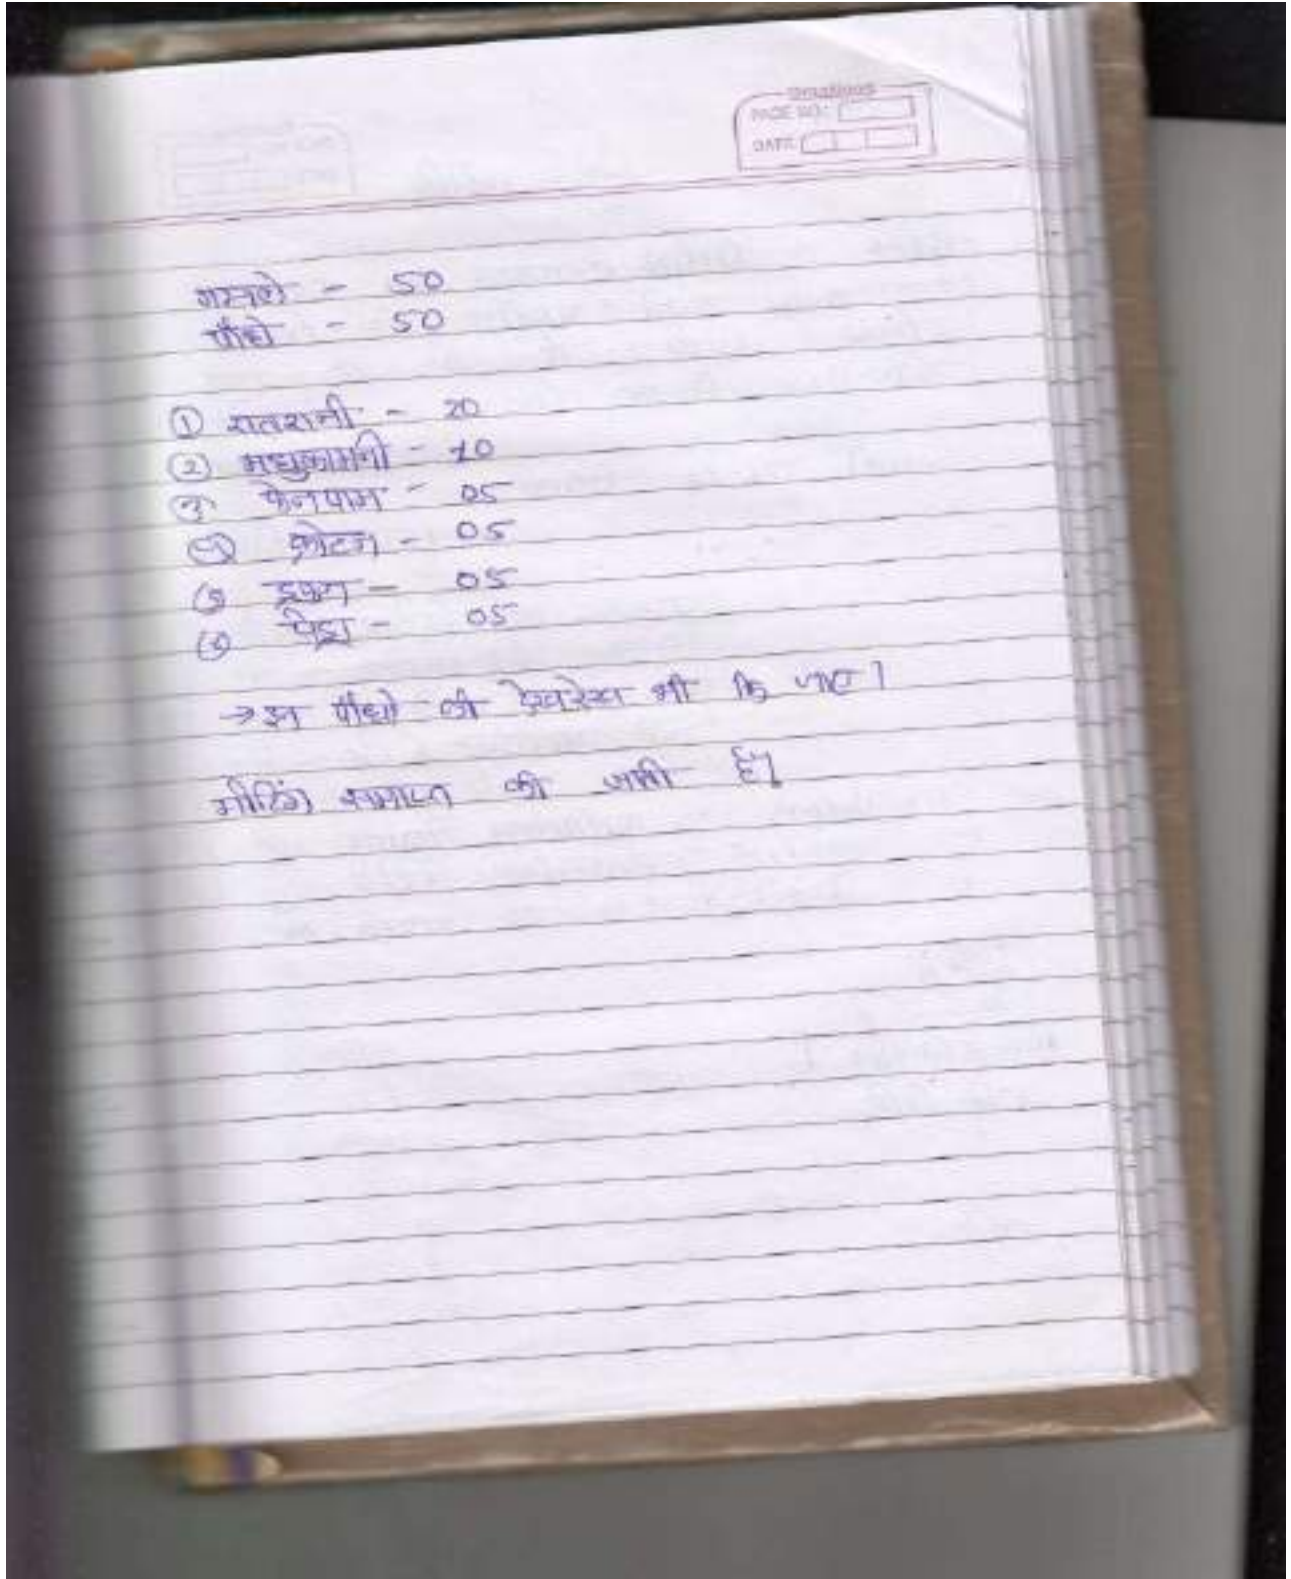 PAGE NO.:
DATE:
गमले - 50
पौधे - 50
① रातरानी - 20
② मधुकामनी - 10
③ फेनपाम - 05
④ क्रोटन - 05
⑤ - 05
⑥ - 05
→ इन पौधो की देखरेख भी कि जाए।
मीटिंग समाप्त की जाती है।